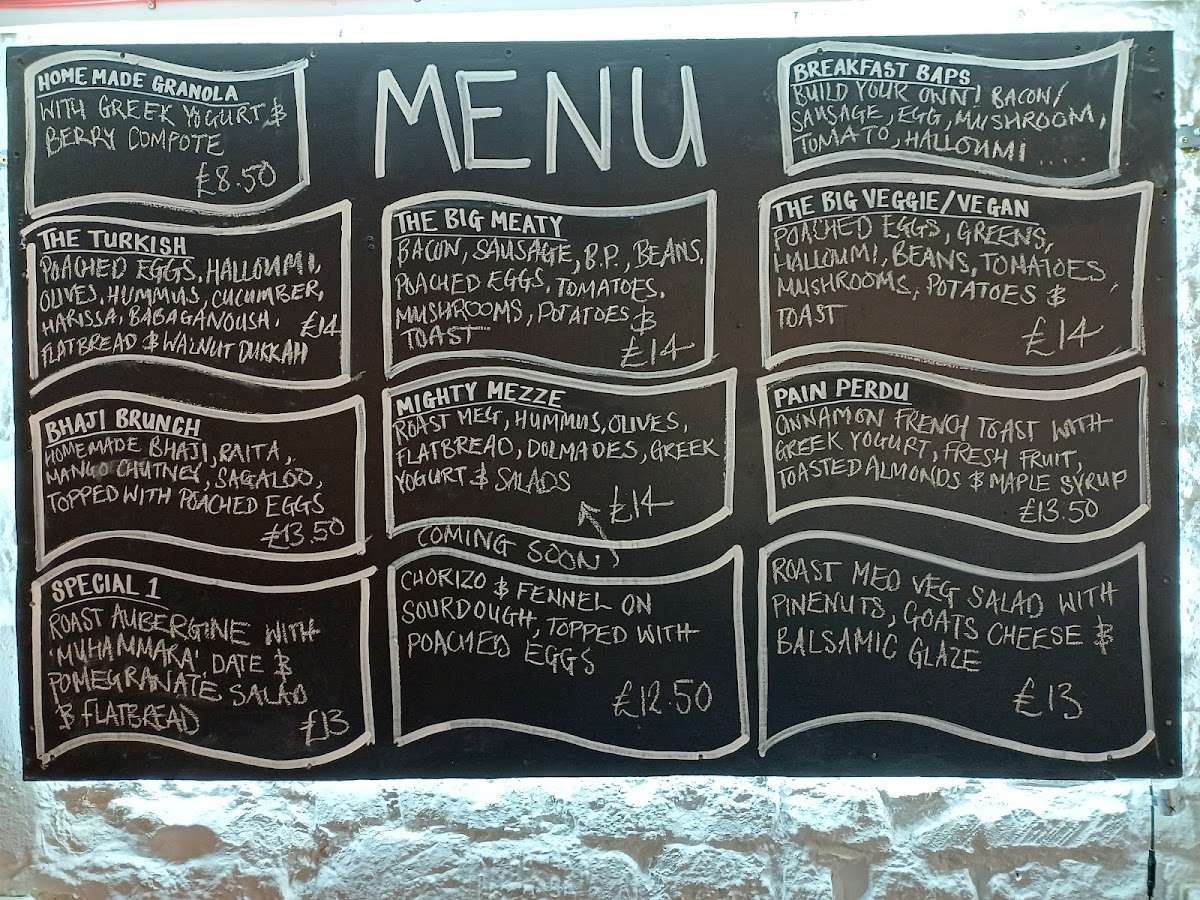 HOME MADE GRANOLA
WITH GREEK YOGURT &
BERRY COMPOTE
£8.50
MENU
BREAKFAST BAPS
BUILD YOUR OWN! BACON/
SAUSAGE, EGG, MUSHROOM,
TOMATO, HALLOUMI ....
THE TURKISH
POACHED EGGS, HALLOUMI,
OLIVES, HUMMUS, CUCUMBER,
HARISSA, BABAGANOUSH, £14
FLATBREAD & WALNUT DUKKAH
THE BIG MEATY
BACON, SAUSAGE, B.P., BEANS,
POACHED EGGS, TOMATOES,
MUSHROOMS, POTATOES &
TOAST
£14
THE BIG VEGGIE/VEGAN
POACHED EGGS, GREENS,
HALLOUMI, BEANS, TOMATOES,
MUSHROOMS, POTATOES &
TOAST
£14
BHAJI BRUNCH
HOMEMADE BHAJI, RAITA,
MANGO CHUTNEY, SAGALOO,
TOPPED WITH POACHED EGGS
£13.50
MIGHTY MEZZE
ROAST MEG, HUMMUS, OLIVES,
FLATBREAD, DOLMADES, GREEK
YOGURT & SALADS
£14
COMING SOON
PAIN PERDU
CINNAMON FRENCH TOAST WITH
GREEK YOGURT, FRESH FRUIT,
TOASTED ALMONDS & MAPLE SYRUP
£13.50
SPECIAL 1
ROAST AUBERGINE WITH
'MUHAMMARA', DATE &
POMEGRANATE SALAD
& FLATBREAD
£13
CHORIZO & FENNEL ON
SOURDOUGH, TOPPED WITH
POACHED EGGS
£12.50
ROAST MED VEG SALAD WITH
PINENUTS, GOATS CHEESE &
BALSAMIC GLAZE
£13